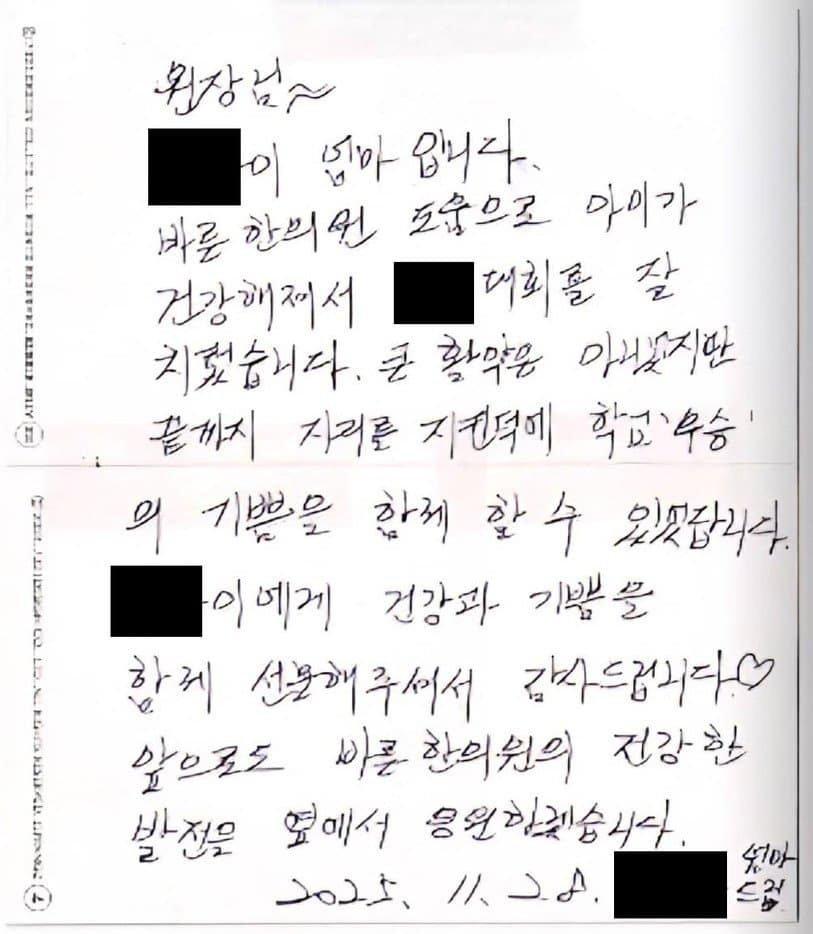 원장님~
이 엄마 입니다.
바른 한의원 도움으로 아이가
건강해져서 대회를 잘
치렀습니다. 큰 활약은 아니였지만
끝까지 자리를 지킨덕에 학교 '우승'
의 기쁨을 함께 할 수 있었답니다.
이에게 건강과 기쁨을
함께 선물해주셔서 감사드립니다♡
앞으로도 바른한의원의 건강한
발전을 옆에서 응원하겠습니다.
2025. 11. 28. 엄마
드림